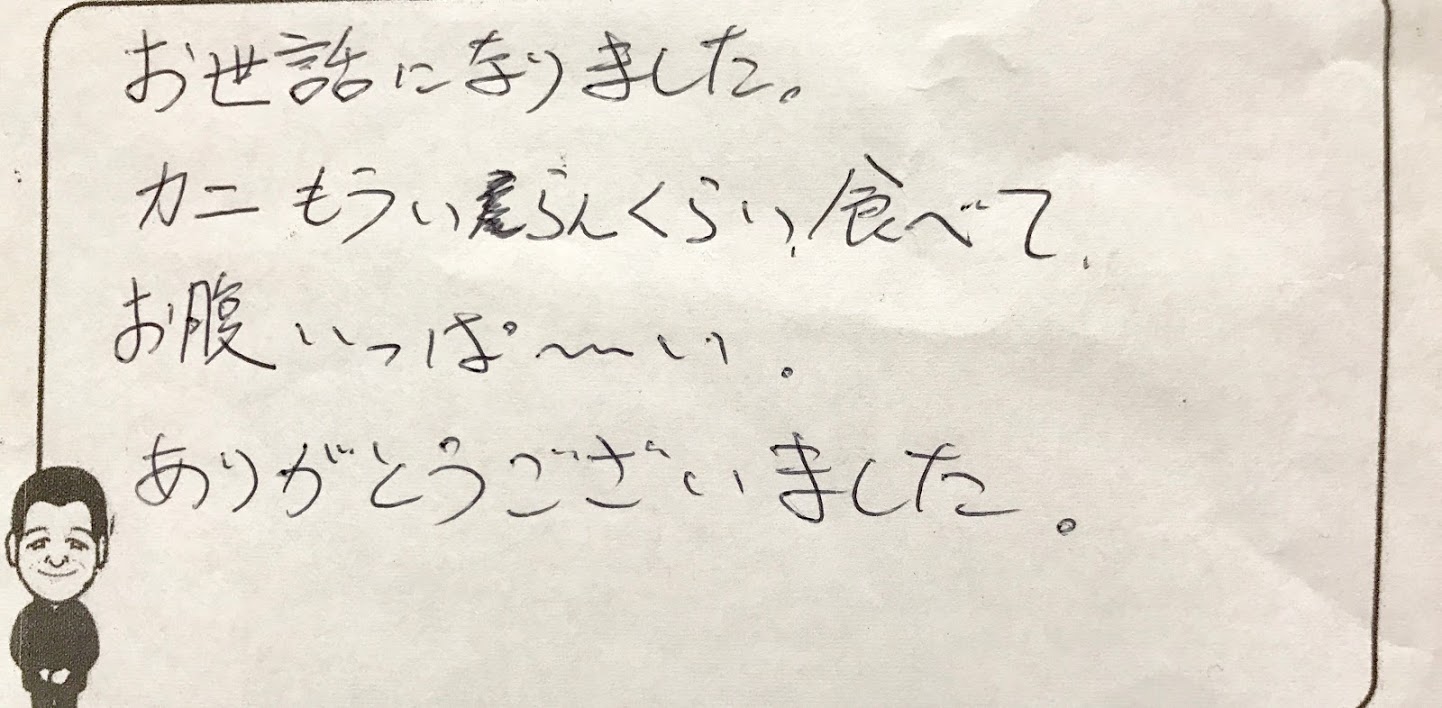 お世話になりました。
カニもういらんくらい、食べて、
お腹いっぱ〜い。
ありがとうございました。